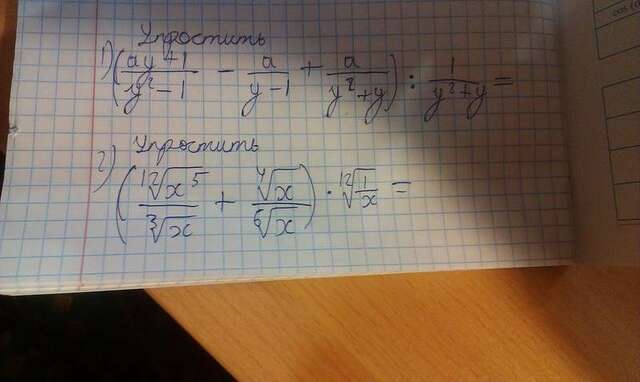 Упростить
1) (\frac{ay+1}{y^2-1} - \frac{a}{y-1} + \frac{a}{y^2+y}) : \frac{1}{y^2+y} =
Упростить
2) (\frac{\sqrt[12]{x^5}}{\sqrt[3]{x}} + \frac{\sqrt[4]{x}}{\sqrt[6]{x}}) \cdot \sqrt[12]{\frac{1}{x}} =